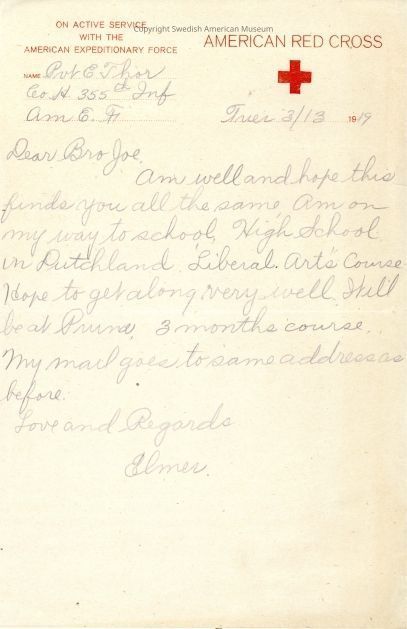 Copyright Swedish American Museum
ON ACTIVE SERVICE
WITH THE
AMERICAN EXPEDITIONARY FORCE
AMERICAN RED CROSS
NAME Pvt E Thor
Co. H 355th Inf
Am E. F.
Trier 3/13 1919
Dear Bro Joe.
Am well and hope this
finds you all the same Am on
my way to school, High School
in Dutchland. Liberal. Art's Course
Hope to get along very well. Will
be at Prum, 3 months course.
My mail goes to same address as
before.
Love and Regards
Elmer.